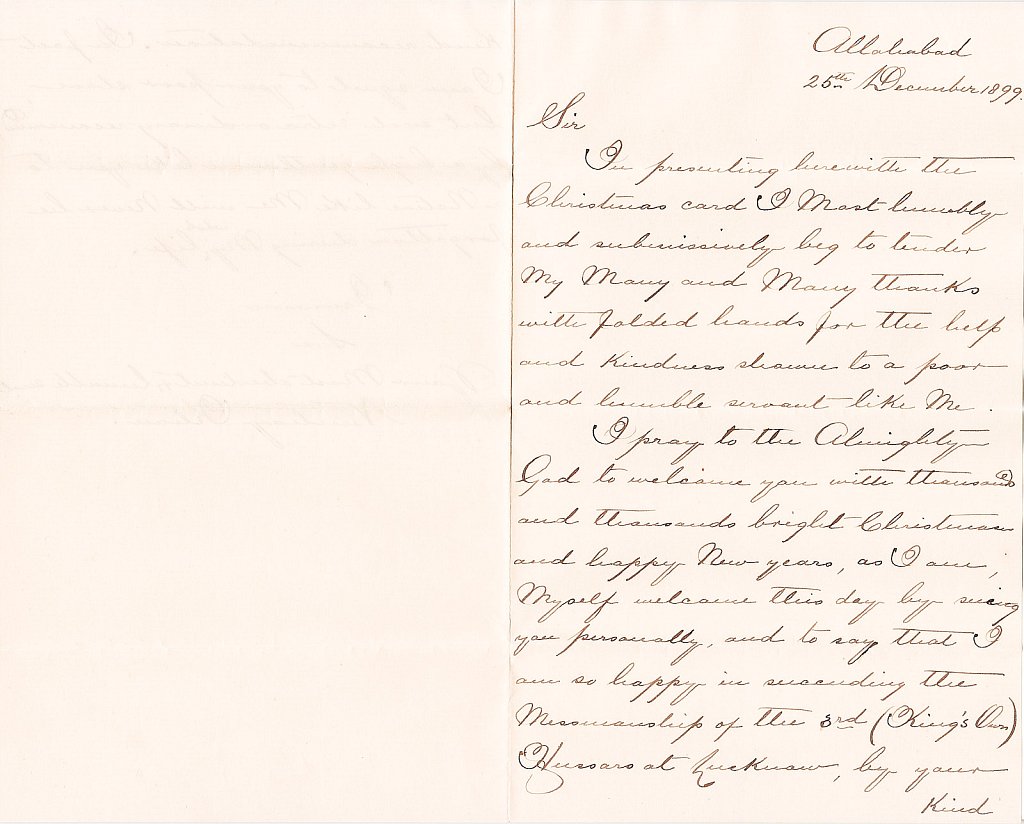 Allahabad
25th December 1899.
Sir
In presenting herewith the
Christmas card I Most humbly
and submissively beg to tender
My Many and Many thanks
with folded hands for the help
and Kindness shown to a poor
and humble servant like Me.
I pray to the Almighty
God to welcome you with thousand
and thousands bright Christmas
and happy New years, as I am,
Myself welcome this day by seeing
you personally, and to say that I
am so happy in succeeding the
Messmanship of the 3rd (King's Own)
Hussars at Lucknow, by your
Kind